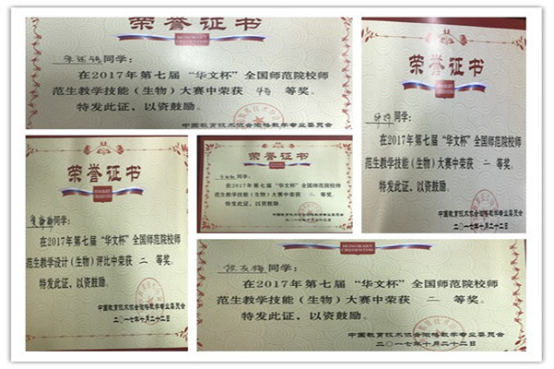 荣誉证书
同学：
在2017年第七届“华文杯”全国师范院校师
范生教学技能（生物）大赛中荣获 特 等奖。
特发此证，以资鼓励。
中国教育技术协会微格教学专业委员会
荣誉证书
同学：
在2017年第七届“华文杯”全国师范院校师
范生教学技能（生物）大赛中荣获 二 等奖。
特发此证，以资鼓励。
中国教育技术协会微格教学专业委员会
二〇一七年十月二十二日
荣誉证书
同学：
在2017年第七届“华文杯”全国师范院校师
范生教学设计（生物）评比中荣获 二 等奖。
特发此证，以资鼓励。
中国教育技术协会微格教学专业委员会
二〇一七年十月二十二日
荣誉证书
同学：
在2017年第七届“华文杯”全国师范院校师
范生教学技能（生物）大赛中荣获 等奖。
特发此证，以资鼓励。
HONORARY
CREDENTIAL
张友梅同学：
在2017年第七届“华文杯”全国师范院校师
范生教学技能（生物）大赛中荣获 二 等奖。
特发此证，以资鼓励。
中国教育技术协会微格教学专业委员会
二〇一七年十月二十二日